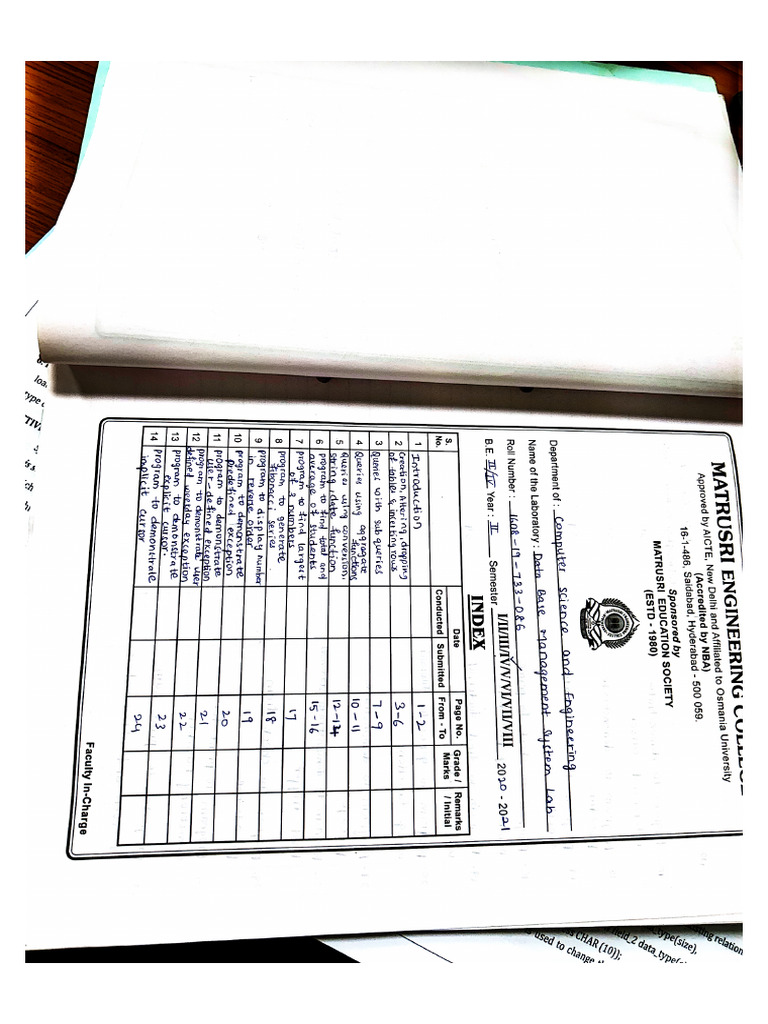 MATRUSRI ENGINEERING COLLEGE
Approved by AICTE, New Delhi and Affiliated to Osmania University
(Accredited by NBA)
16-1-486, Saidabad, Hyderabad - 500 059.
Sponsored by
MATRUSRI EDUCATION SOCIETY
(ESTD - 1980)
Department of : Computer science and Engineering
Name of the Laboratory : Data Base Management System Lab
Roll Number : 1608-19-733-086
B.E. II/IV Year : II Semester I/II/III/IV/V/VI/VII/VIII 2020 - 2021
INDEX
S. No. Date Conducted Submitted Page No. From - To Grade / Marks Remarks / Initial
1 Introduction 1-2
2 Creation, Altering, dropping
of tables & inserting rows 3-6
3 Queries with sub queries 7-9
4 Queries using aggragate
functions 10-11
5 Queries using conversion,
string, date function 12-14
6 program to find total and
average of students 15-16
7 program to find largest
of 3 numbers 17
8 program to generate
fibonacci series 18
9 program to display number
in reverse order 19
10 program to demonstrate
predefined exception 20
11 program to demonstrate
user-defined exception 21
12 program to demonstrate user
defined weekday exception 22
13 program to demonstrate
explicit cursor. 23
14 program to demonstrate
implicit cursor 24
Faculty In-Charge
ting relation
field_2 data_type(size),
ss CHAR (10));
used to change